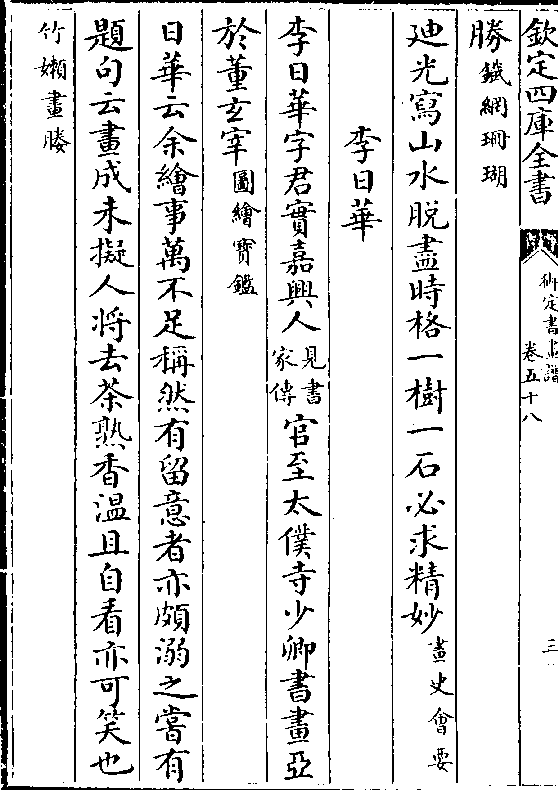 欽定四庫全書
御定書畫譜
卷五十八
三
勝鐵網珊瑚
廸光寫山水脫盡時格一樹一石必求精妙畫史會要
李日華
李日華字君實嘉興人見書家傳官至太僕寺少卿書畫亞
於董玄宰圖繪寶鑑
日華云余繪事萬不足稱然有留意者亦頗溺之嘗有
題句云畫成未擬人將去茶熟香溫且自看亦可笑也
竹嬾畫媵